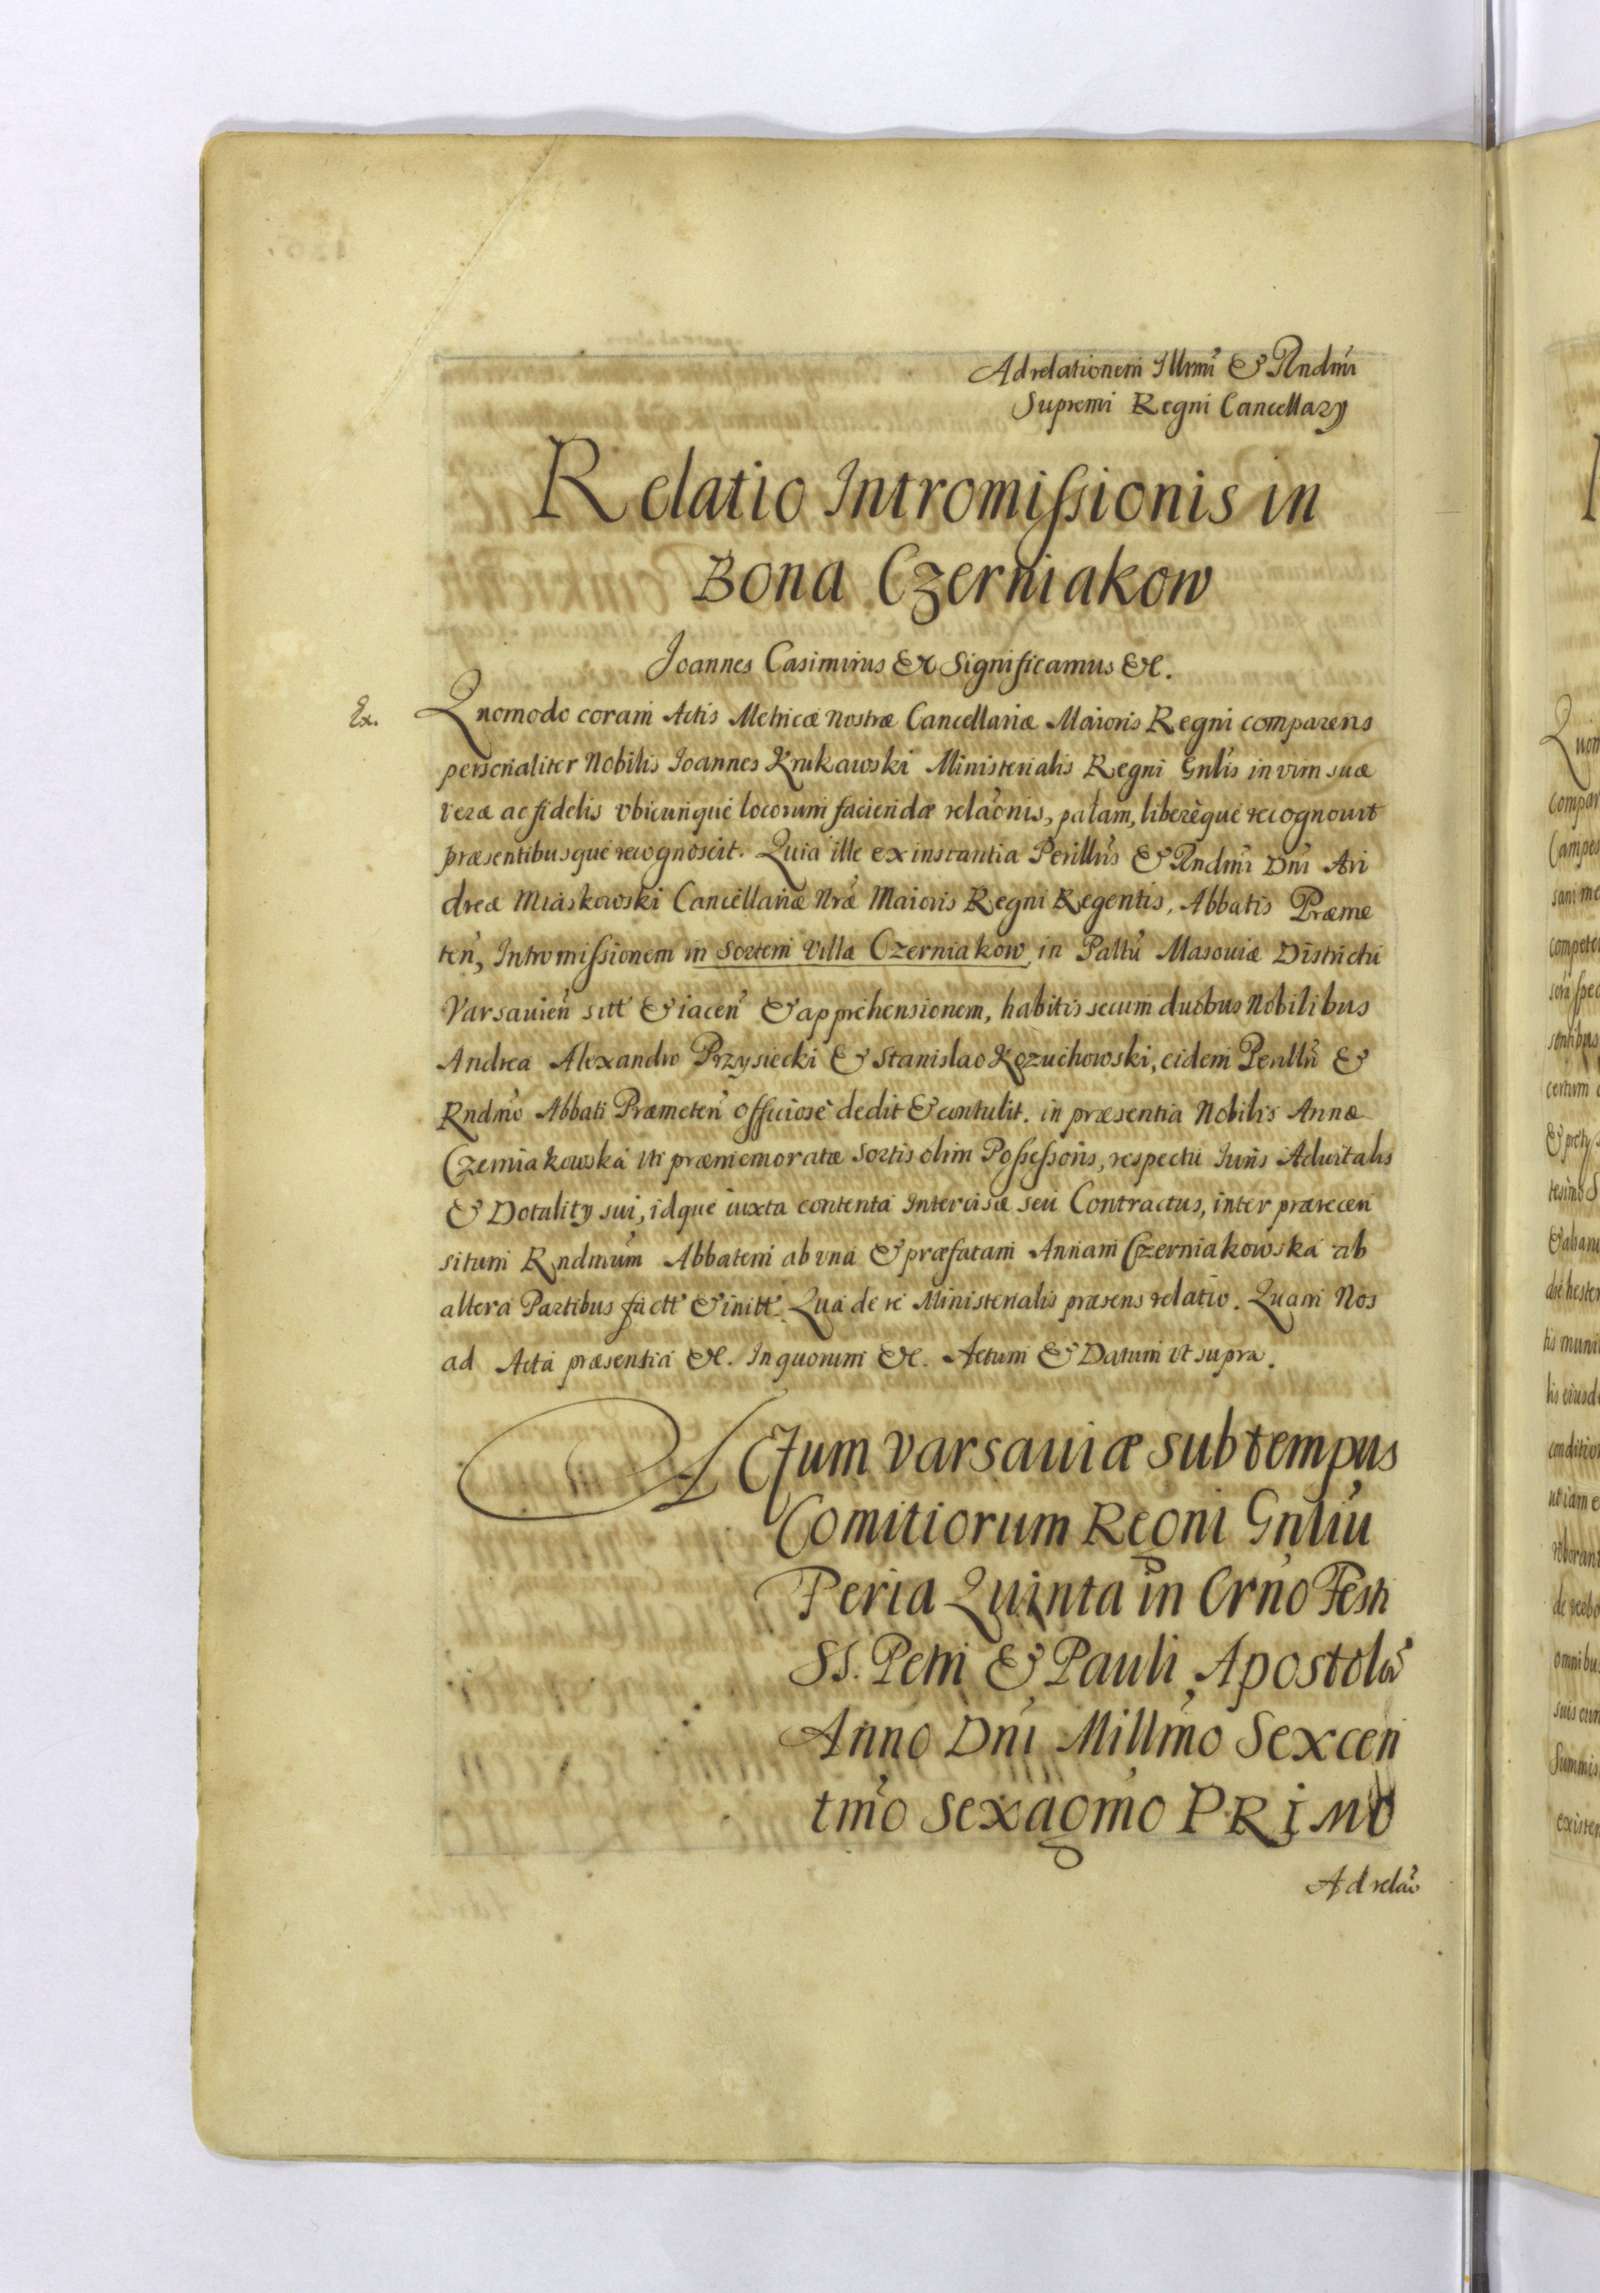 Ad relationem Illrmi & Rndmi
Supremi Regni Cancellarÿ
Relatio Intromissionis in
Bona Czerniakow
Joannes Casimirus &c Significamus &c.
Ex. Quomodo coram Actis Metricæ nostræ Cancellariæ Maioris Regni comparens
personaliter Nobilis Joannes Krukawski Ministerialis Regni Gnlis in vim suæ
veræ ac fidelis vbicunque locorum faciendæ relaōnis, palam, libereque recognouit
præsentibusque recognoscit. Quia ille ex instantia Perillus & Rndmi Dni An
dreæ Miaskowski Cancellariæ Nræ Maioris Regni Regentis, Abbatis Præme
ten, Intromissionem in Sortem Villæ Czerniakow in Paltu Masouiæ Districtu
Varsauien sitt & iacen & apprehensionem, habitis secum duobus Nobilibus
Andrea Alexandro Przysiecki & Stanislao Kozuchowski, eidem Perillu &
Rndmo Abbati Præmeten officiosè dedit & contulit. in præsentia Nobilis Annæ
Czerniakowska vti præmemoratæ Sortis olim Possessoris, respectu Iuris Aduitalis
& Dotalitÿ sui, idque iuxta contenta Intercisæ seu Contractus, inter præcecen
situm Rndmum Abbatem ab vna & præfatam Annam Czerniakowska ab
altera Partibus factt & initt. Qua de re Ministerialis præsens relatio. Quam Nos
ad Acta præsentia &c. In quorum &c. Actum & Datum vt supra.
Actum Varsauiæ sub tempus
Comitiorum Regni Gnliu
Feria Quinta in Crno Festi
SS. Petri & Pauli Apostolor
Anno Dni Millmo Sexcen
tmo Sexagmo PRIMO
Ad relaō